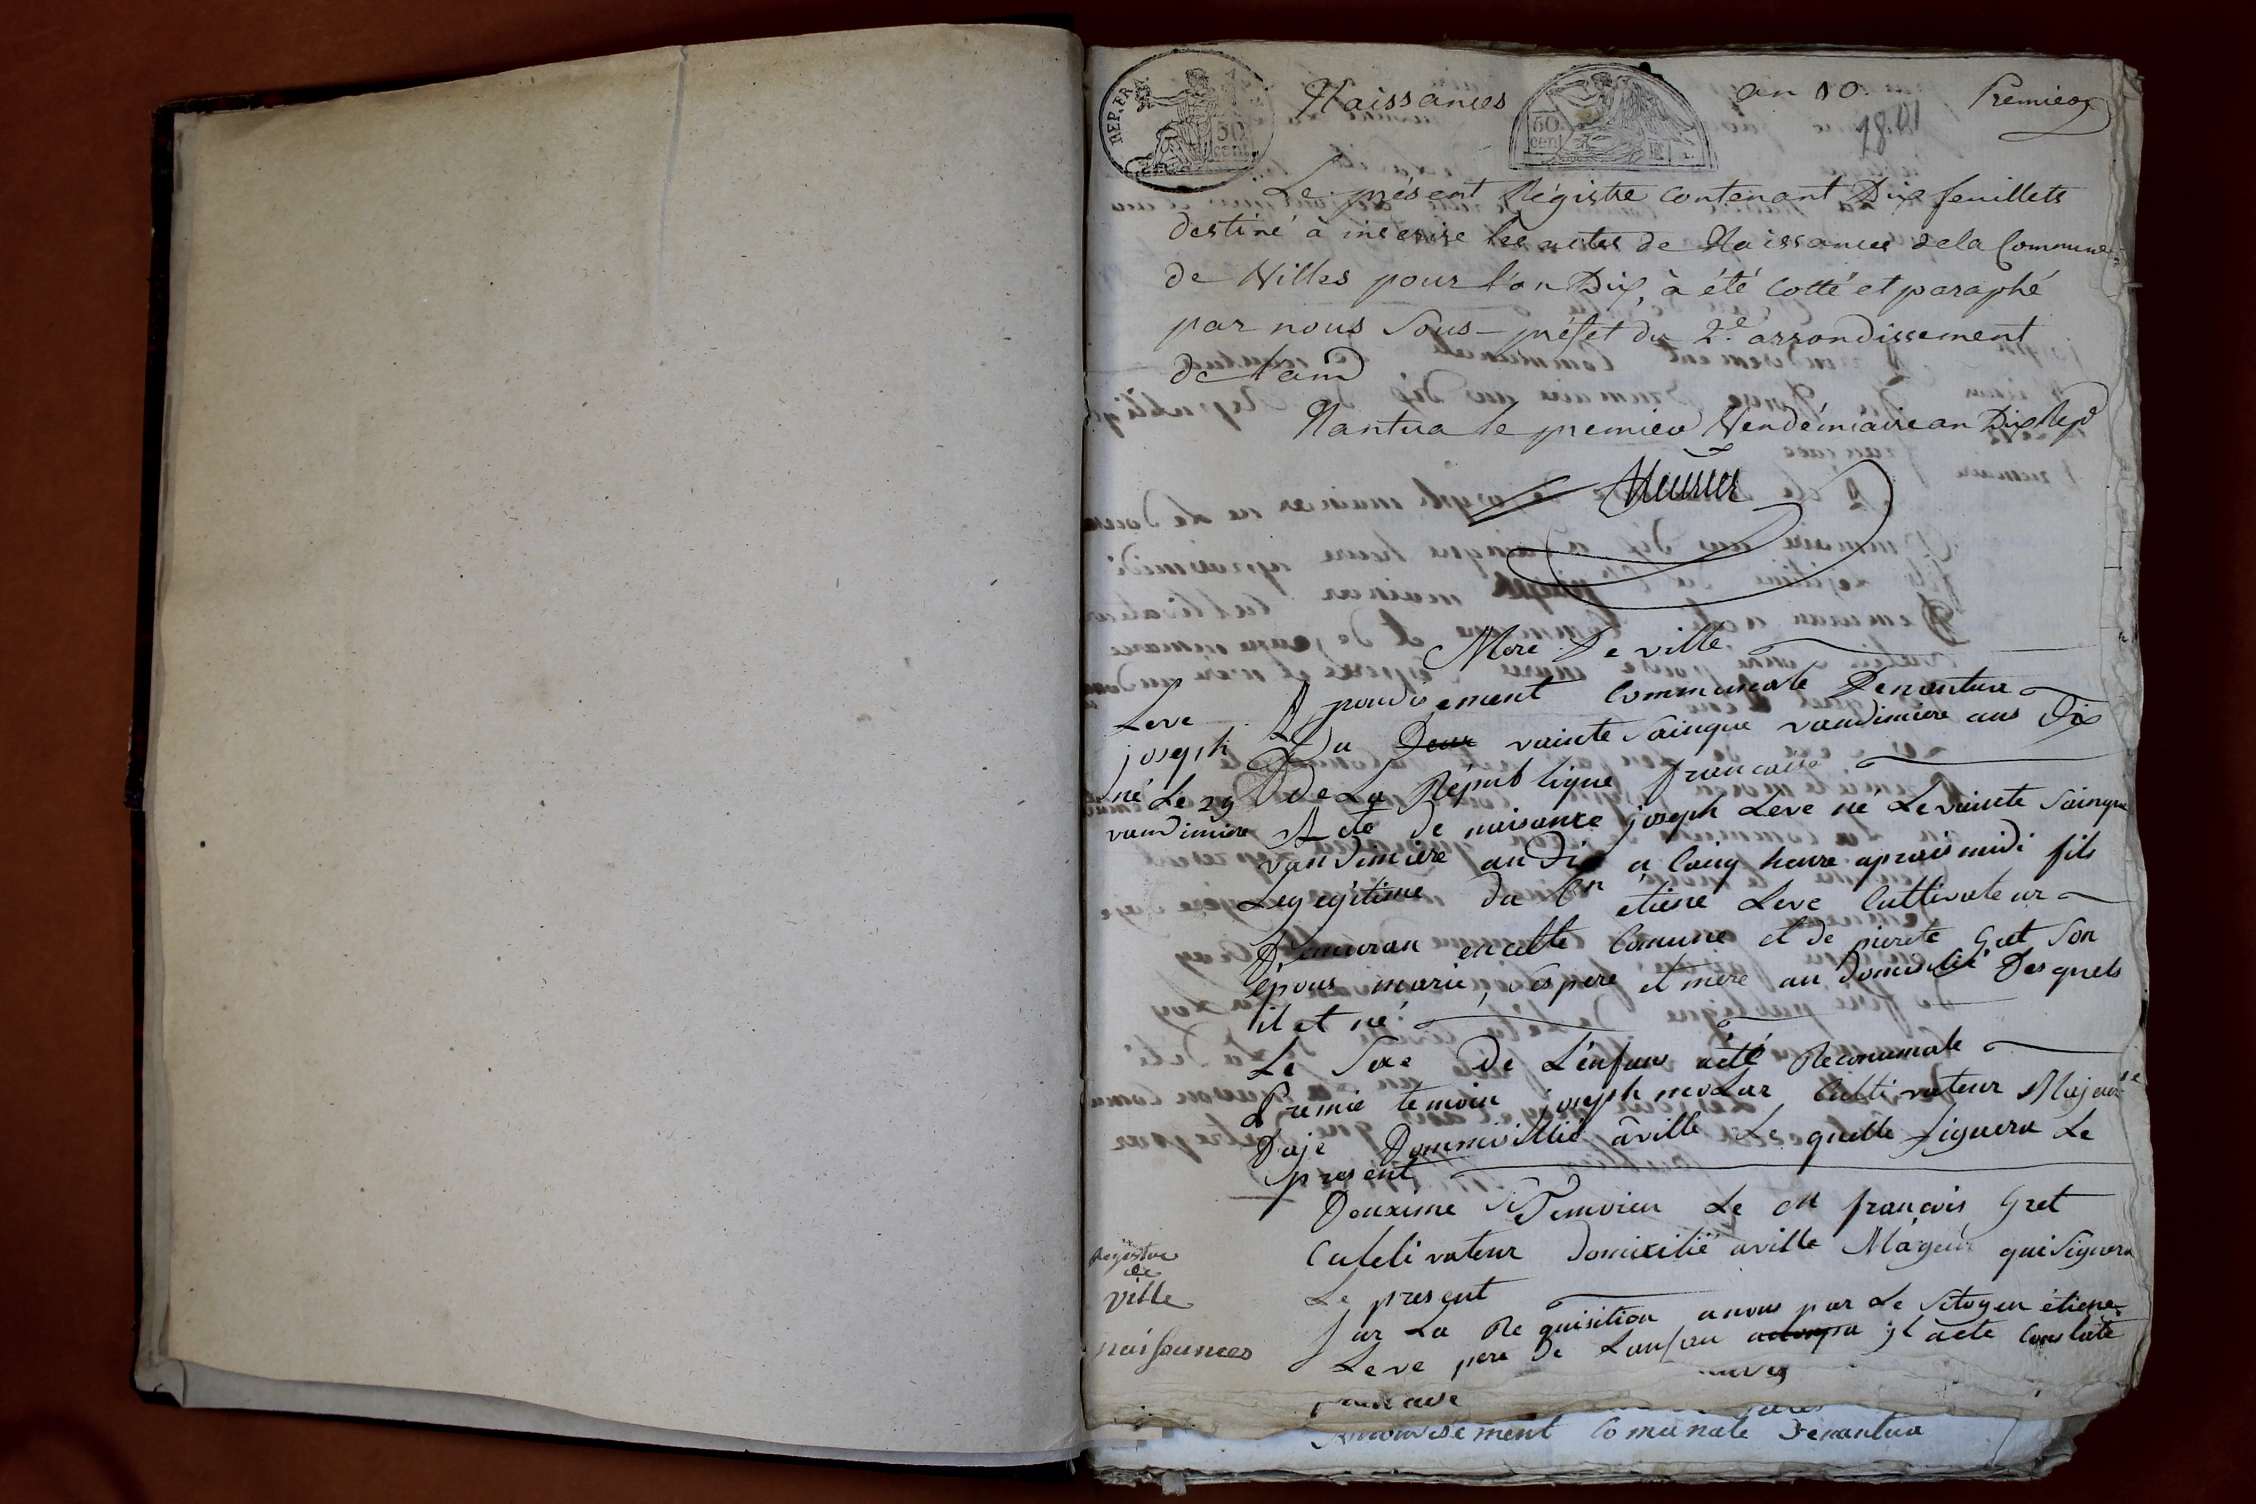 REP. FRA.
50
cent
Naissances
50
cent
an 10.
1801
Premier
Le présent Régistre contenant Dix feuillets
destiné à inscrire les actes de Naissances de la Commune
de Villes pour l'an Dix, à été Cotté et paraphé
par nous Sous-préfet du 2e. arrondissement
de l'ain
Nantua le premier Vendémiaire an Dix Rep
Meré De ville
Leve
joseph
né Le 29
vandimiere
A roudisement Communale Denantua
Du Deux vainte Sainque vandimiere ans Dix
De La Républigue francaise
Acte De naisance joseph Leve né Le vainte Sainque
vandimiere an Dix a Cainq heure aprais midi fils
Leg egitime du Cn etiene Leve Cultivateur
Demuran encette Comune et de pierete Gret Son
épous marié, Ses pere et mere au Domicilié Desquels
il et né
Le Sexe De L'enfans aété Reconumale
Premié temoin joseph moLar Cultivateur Majeur
D'aje Dommicillié aville Le quelle Signera Le
present
Deuxime Temoien Le Cn francois Gret
Culeti vateur Domicilié aville Mageur qui Signera
Le present
Sur La Re quisition anous par Le Sitoyen étiene
Leve pere De Lanfan et acte Constaté
Registre
de
Ville
naissances
ment Comunale Denantua